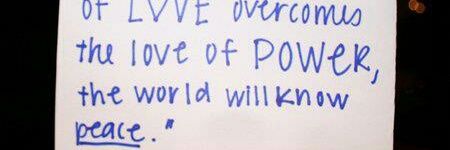 of LOVE overcomes
the love of POWER,
the world will know
peace."